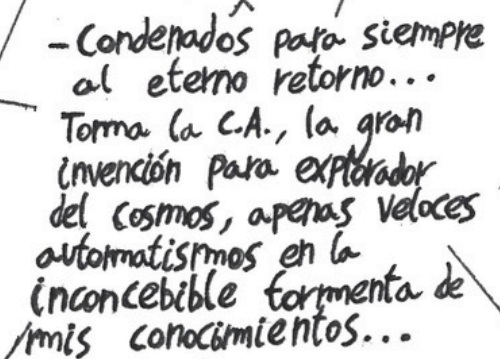 - Condenados para siempre
al eterno retorno...
Toma la C.A., la gran
invención para explorador
del cosmos, apenas veloces
automatismos en la
inconcebible tormenta de
mis conocimientos...